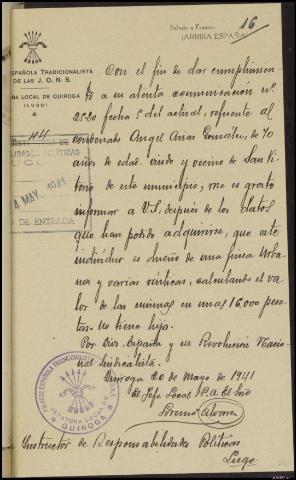 Saludo a Franco:
¡ARRIBA ESPAÑA!
16
ESPAÑOLA TRADICIONALISTA
DE LAS J. O. N. S.
JEFATURA LOCAL DE QUIROGA
(LUGO)
Con el fin de dar cumplimien-
to a su atenta comunicación nº.
2520 fecha 5 del actual, referente al
condenado Angel Arias González, de 70
años de edad, viudo y vecino de San Vi-
torio de este municipio, me es grato
informar a V.S. después de los datos
que han podido adquirirse, que este
individuo es dueño de una finca Urba-
na y varias rústicas, calculando el va-
lor de las mismas en unas 16.000 pese-
tas. no tiene hijos.
Por Dios, España y su Revolución Nacio-
nal Sindicalista.
Quiroga 20 de Mayo de 1941
El Jefe Local P.A. El Srio
Alvarez
MAY. 1941
DE ENTRADA
FALANGE ESPAÑOLA TRADICIONALISTA
JEFATURA LOCAL DE
QUIROGA
Instructor de Responsabilidades Políticas
Lugo.